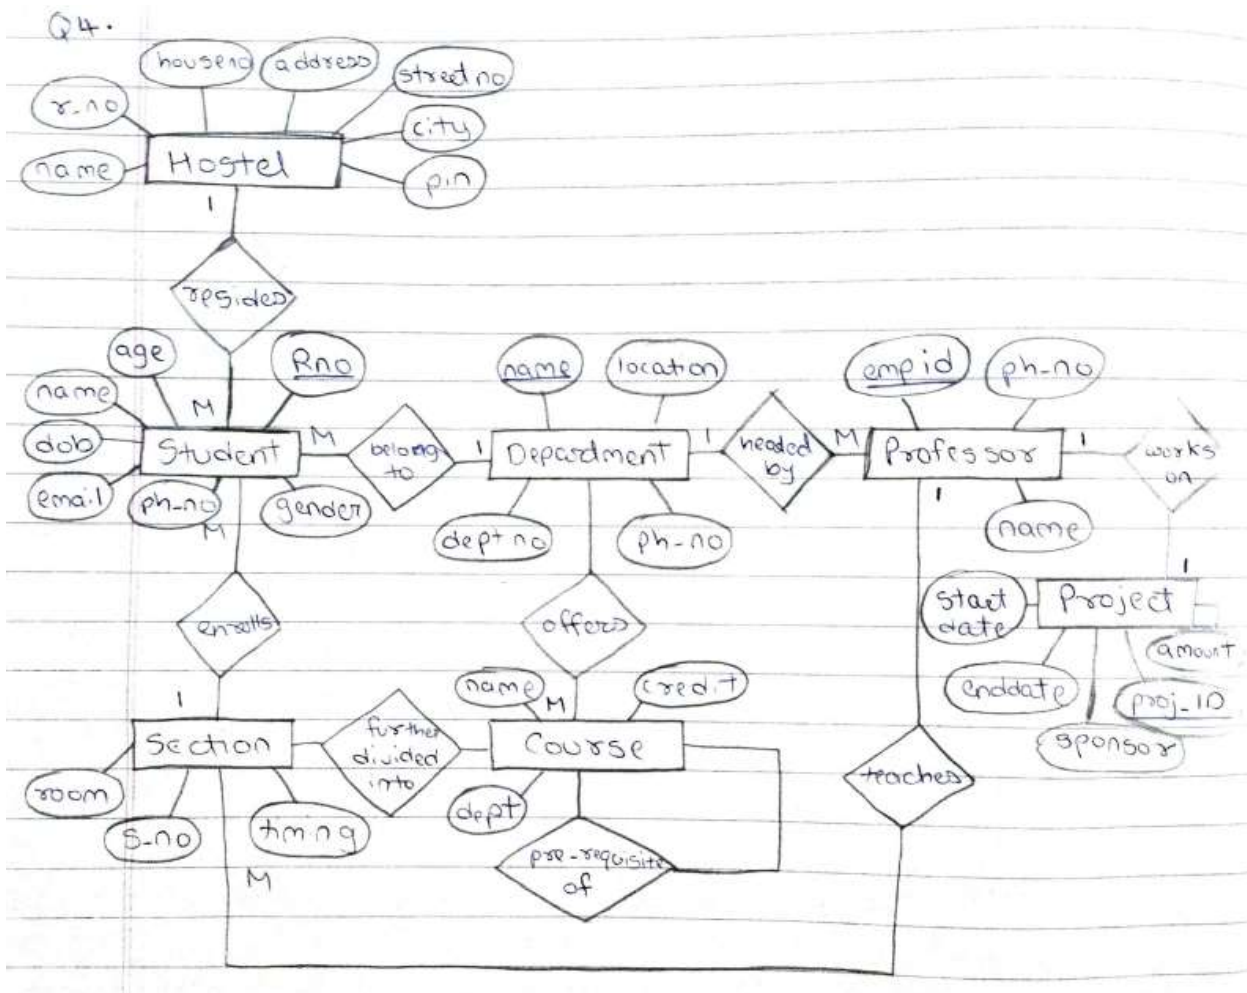 Q4.
houseno address street no
r_no city
name Hostel pin
1
resides
age Rno name location emp id ph-no
name M
dob Student M belongs to 1 Department 1 headed by M Professor 1 works on
email ph-no gender dept no ph-no 1 name
M 1
enrolls offers start date Project
amount
name credit enddate proj_ID
1 M sponsor
Section further divided into Course
room teaches
S_no timing dept
M pre-requisite of